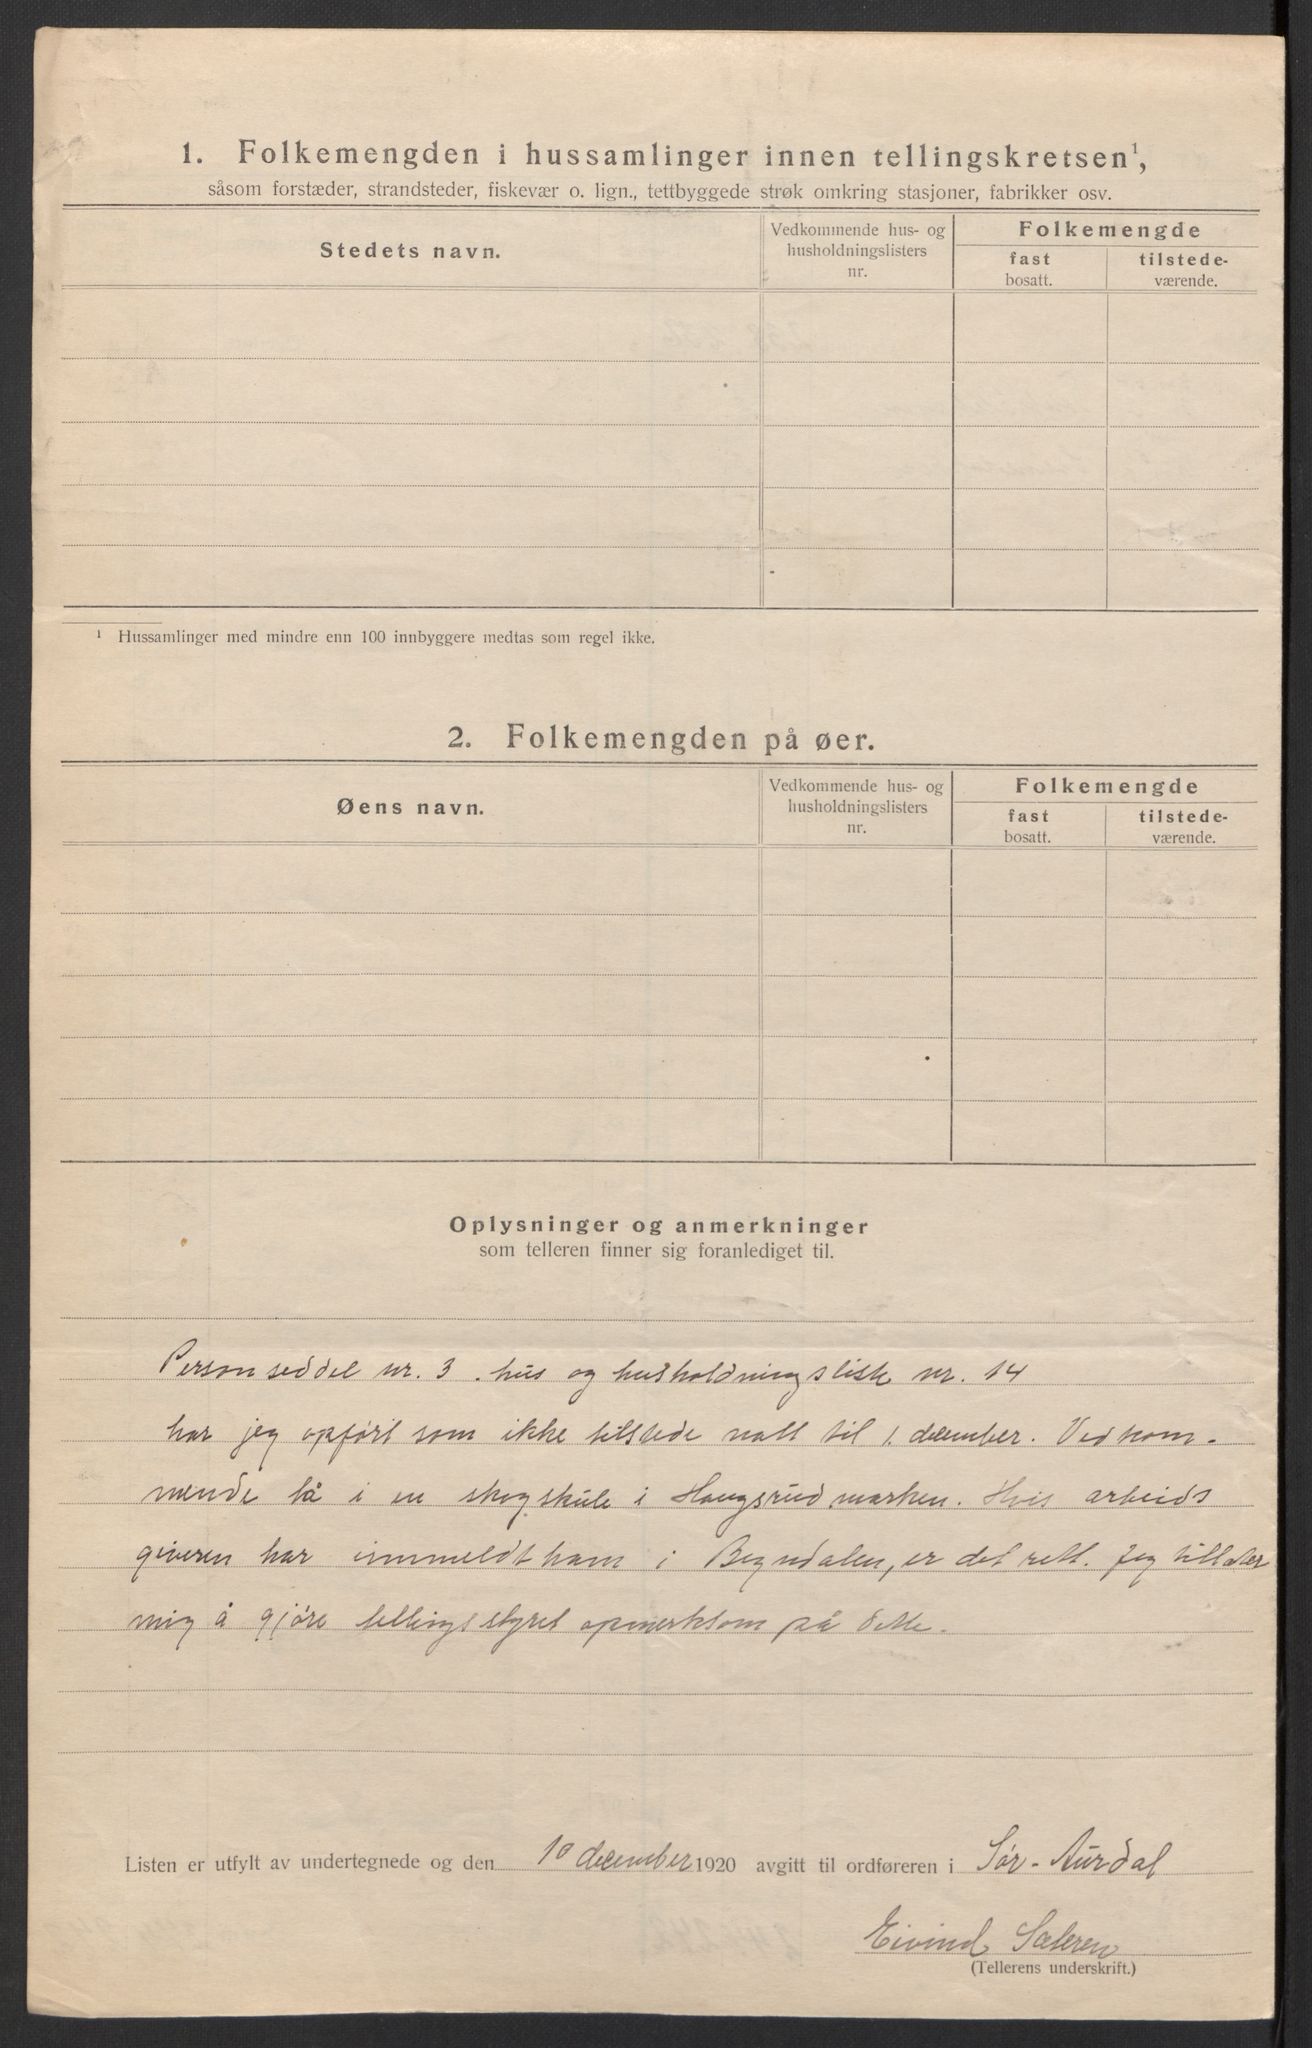 1. Folkemengden i hussamlinger innen tellingskretsen¹,
såsom forstæder, strandsteder, fiskevær o. lign., tettbyggede strøk omkring stasjoner, fabrikker osv.
Stedets navn.
Vedkommende hus- og
husholdningslisters
nr.
Folkemengde
fast
bosatt.
tilstede-
værende.
¹ Hussamlinger med mindre enn 100 innbyggere medtas som regel ikke.
2. Folkemengden på øer.
Øens navn.
Vedkommende hus- og
husholdningslisters
nr.
Folkemengde
fast
bosatt.
tilstede-
værende.
Oplysninger og anmerkninger
som telleren finner sig foranlediget til.
Personseddel nr. 3. hus og husholdningsliste nr. 14
har jeg opført som ikke tilstede natt til 1. december. Vedkom-
mende lå i en skogskule i Haugsrudmarken. Hvis arbeids
giveren har innmeldt ham i Begndalen, er det rett. Jeg tillater
mig å gjøre tellingsstyret opmerksom på dette.
Listen er utfylt av undertegnede og den 10 december 1920 avgitt til ordføreren i Sør-Aurdal
Eivind Sæteren
(Tellerens underskrift.)